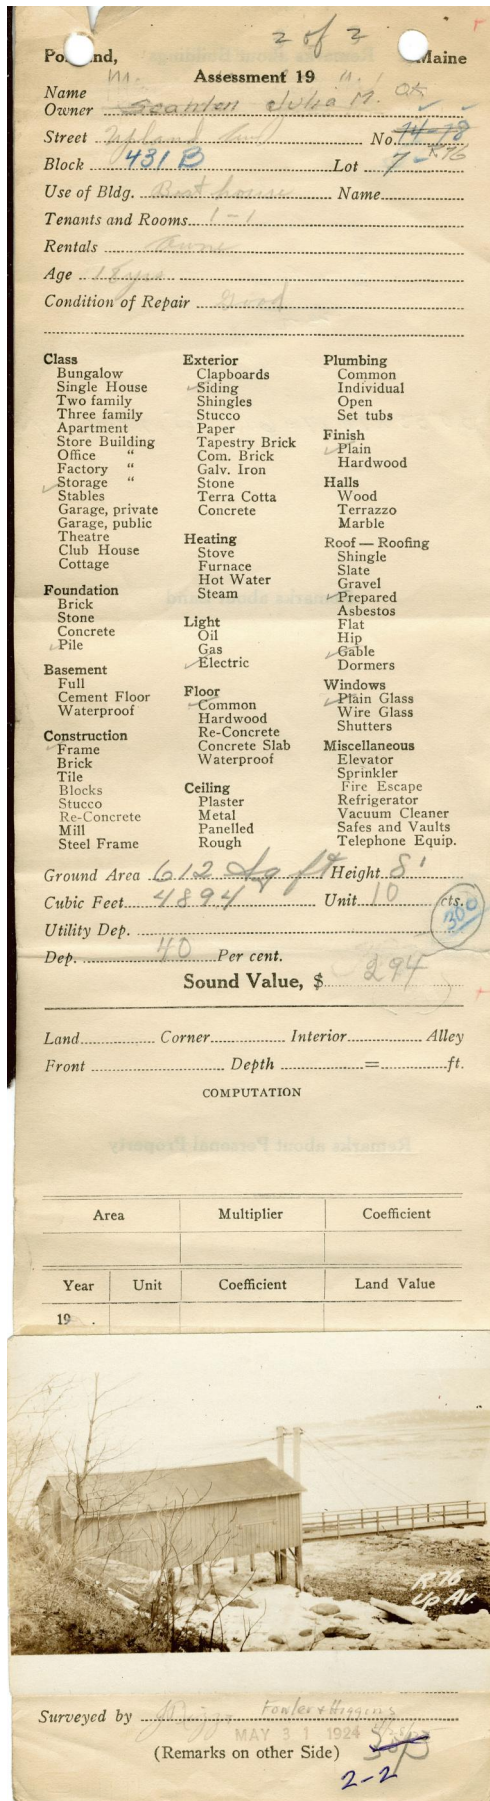 2 of 2
Portland, Maine
Assessment 19
Name
Owner Scanlon Julia M. OK
Street Upland Ave No. 74-78
R76
Block 431 B Lot 7-
Use of Bldg. Boat house Name
Tenants and Rooms 1-1
Rentals
Age 18 yrs
Condition of Repair Good
Class
Bungalow
Single House
Two family
Three family
Apartment
Store Building
Office "
Factory "
✓ Storage "
Stables
Garage, private
Garage, public
Theatre
Club House
Cottage
Foundation
Brick
Stone
Concrete
✓ Pile
Basement
Full
Cement Floor
Waterproof
Construction
✓ Frame
Brick
Tile
Blocks
Stucco
Re-Concrete
Mill
Steel Frame
Exterior
Clapboards
✓ Siding
Shingles
Stucco
Paper
Tapestry Brick
Com. Brick
Galv. Iron
Stone
Terra Cotta
Concrete
Heating
Stove
Furnace
Hot Water
Steam
Light
Oil
Gas
✓ Electric
Floor
✓ Common
Hardwood
Re-Concrete
Concrete Slab
Waterproof
Ceiling
Plaster
Metal
Panelled
Rough
Plumbing
Common
Individual
Open
Set tubs
Finish
✓ Plain
Hardwood
Halls
Wood
Terrazzo
Marble
Roof — Roofing
Shingle
Slate
Gravel
✓ Prepared
Asbestos
Flat
Hip
✓ Gable
Dormers
Windows
✓ Plain Glass
Wire Glass
Shutters
Miscellaneous
Elevator
Sprinkler
Fire Escape
Refrigerator
Vacuum Cleaner
Safes and Vaults
Telephone Equip.
Ground Area 612 Sq ft Height 8'
Cubic Feet 4894 Unit 10 cts.
300
Utility Dep.
Dep. 40 Per cent.
Sound Value, $ 294
Land Corner Interior Alley
Front Depth = ft.
COMPUTATION
Area Multiplier Coefficient
Year Unit Coefficient Land Value
19 .
R.76
Up Av.
Surveyed by Fowler & Higgins
MAY 31 1924
(Remarks on other Side)
2-2